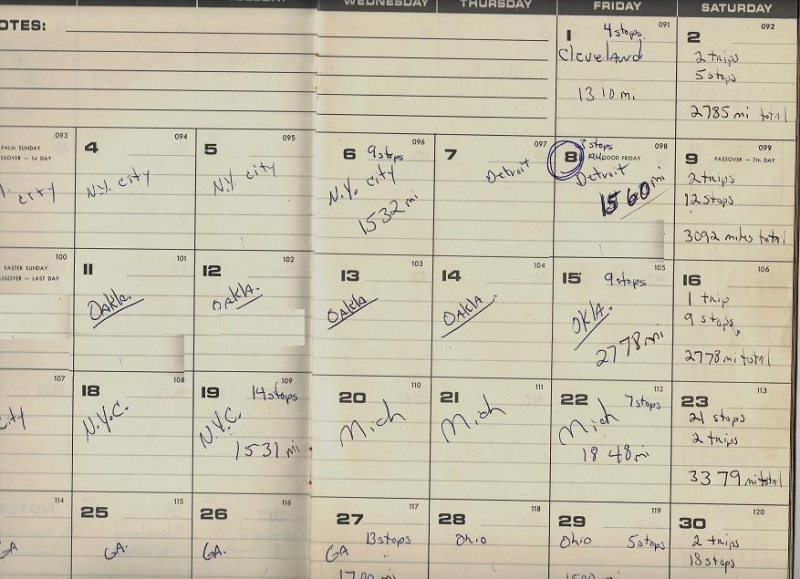 WEDNESDAY THURSDAY FRIDAY SATURDAY
NOTES:
1 4 stops 091
Cleveland
1310 mi
2 092
2 trips
5 stops
2785 mi total
093
PALM SUNDAY
PASSOVER — 1st DAY
N.Y. city
4 094
N.Y. city
5 095
N.Y. city
6 9 stops 096
N.Y. city
1532 mi
7 097
Detroit
8 3 stops 098
GOOD FRIDAY
Detroit
1560 mi
9 PASSOVER — 7th DAY 099
2 trips
12 stops
3092 miles total
100
EASTER SUNDAY
PASSOVER — LAST DAY
11 101
Oakla.
12 102
OAKLA.
13 103
OAKLA
14 104
OAKLA.
15 9 stops 105
OKLA.
2778 mi
16 106
1 trip
9 stops
2778 mi total
107
City
18 108
N.Y.C.
19 14 stops 109
N.Y.C.
1531 mi
20 110
Mich
21 111
Mich
22 7 stops 112
Mich
1848 mi
23 113
21 stops
2 trips
3379 mi total
114
GA
25 115
GA.
26 116
GA.
27 117
GA 13 stops
28 118
Ohio
29 119
Ohio 5 stops
30 120
2 trips
18 stops